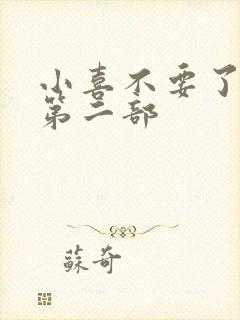 小喜不要了
第二部
蘇奇